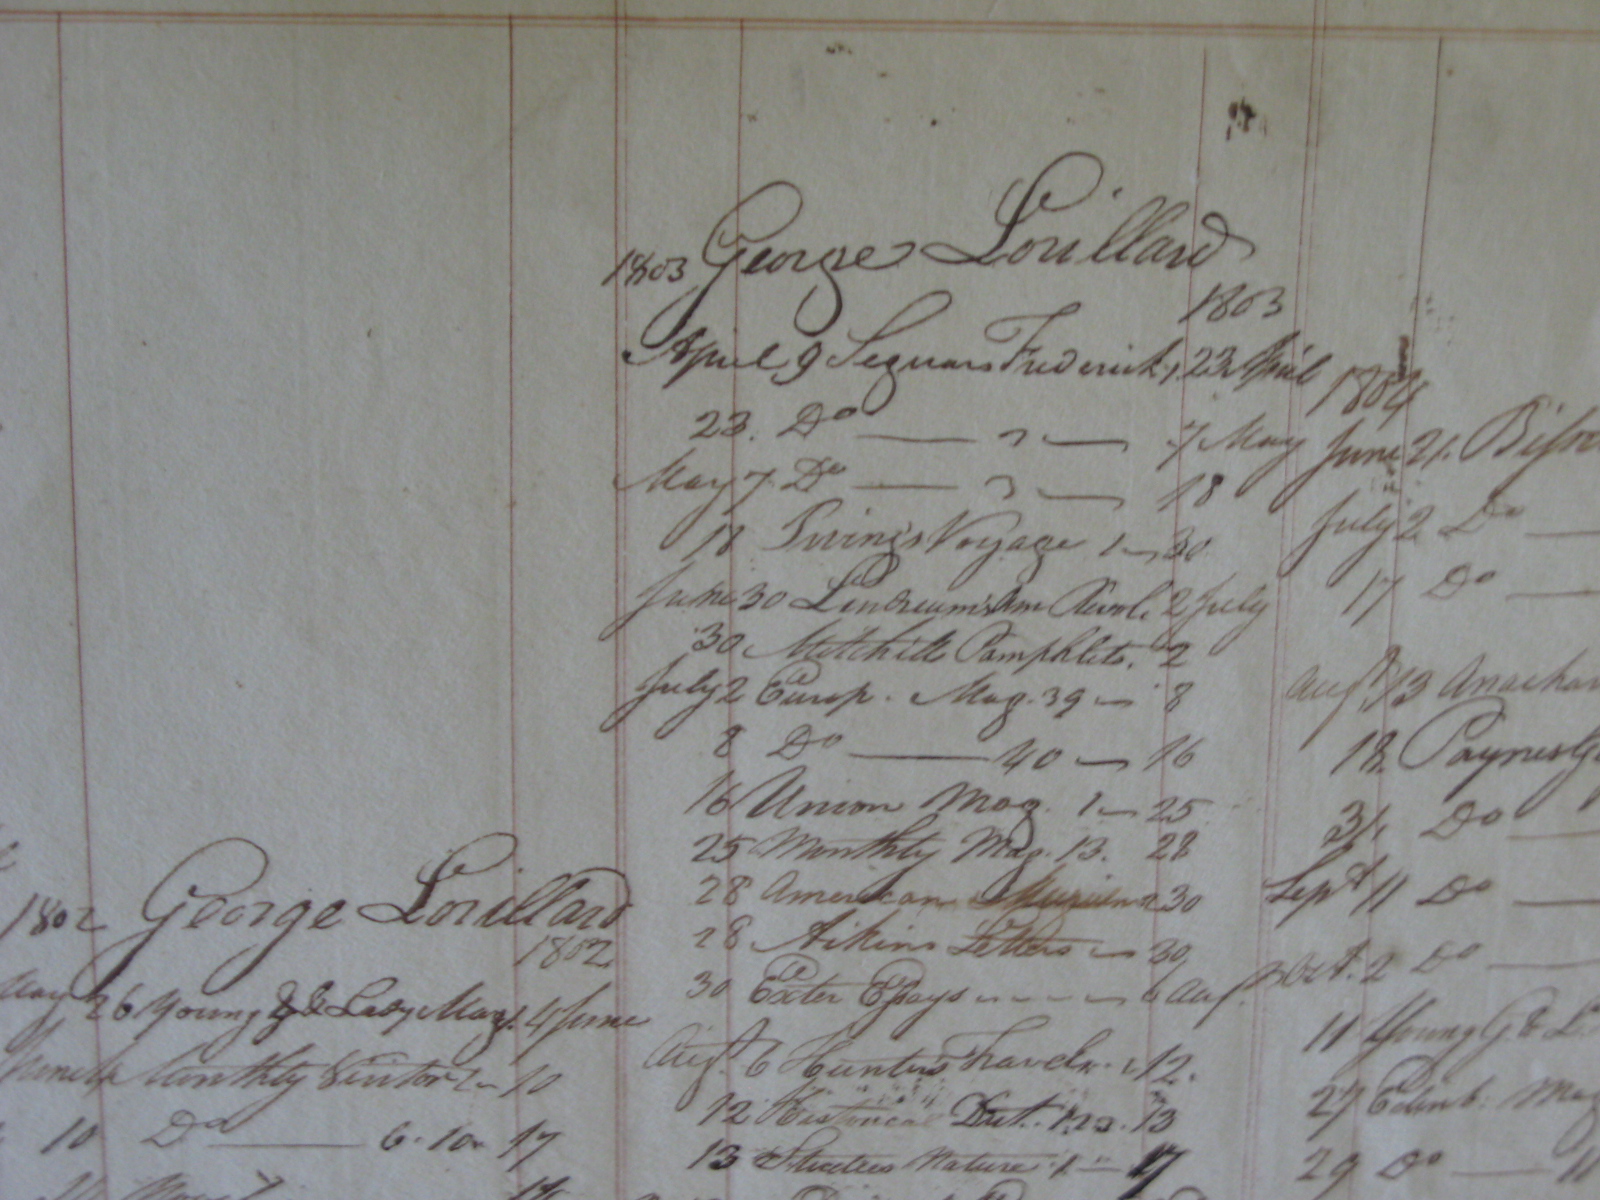 1802 George Lorillard
1802
May 26 Young G & Lady Mag. 1. 4 June
Monthly Visitor 10
10 Do 6. 10 17
1803 George Lorillard
1803
April 9 Segurs Frederick 1. 23 April
23. Do 2 7 May
May 7 Do 3 18
18 Voyage 1 30
June 30 Am Revol. 2 July
30 Mitchills Pamphlets. 2
July 2 Europ. Mag. 39 8
8 Do 40 16
16 Union Mag. 1 25
25 Monthly Mag. 13. 28
28 American Museum 30
28 Aikins Letters 30
30 Exeter Essays 6 Aug.
Augt. 6 Hunters Travels 12.
12 Historical Dict. 1. 13
13 Studies Nature 1 17
1804
June 21.
July 2 Do
17 Do
Augt 13
18 Paynes
31. Do
Sept 11 Do
Oct. 2 Do
11 Young G & L
27 Edinb. Mag
29 Do 11